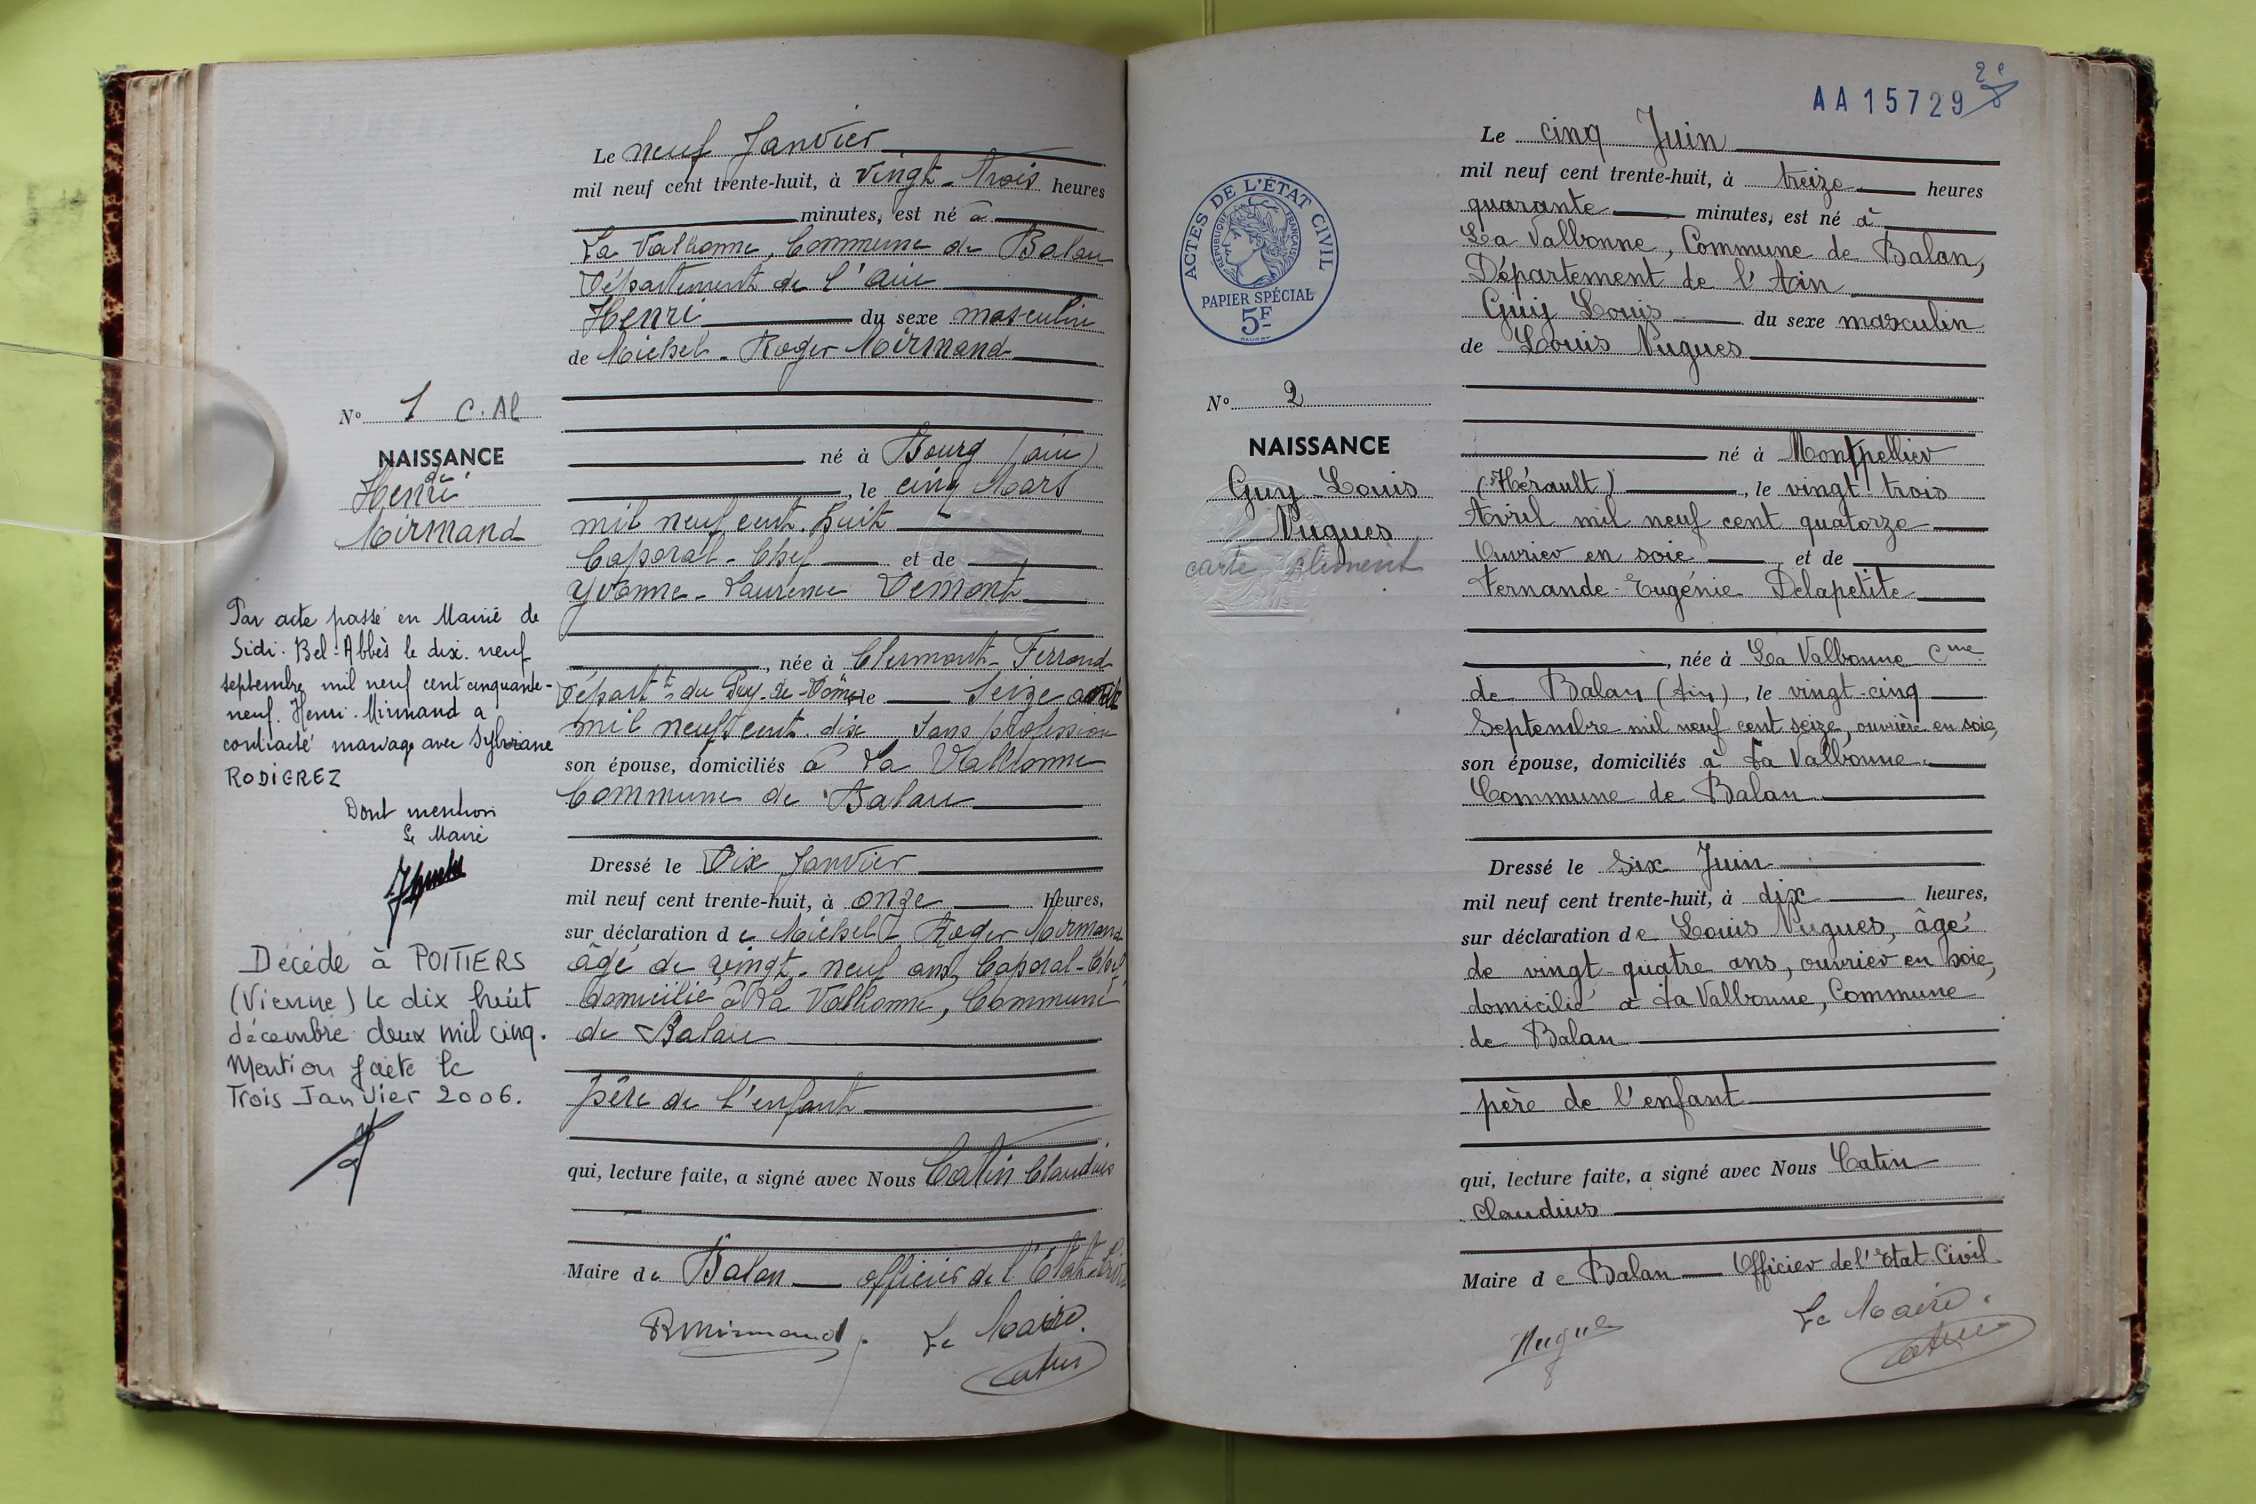 Le neuf Janvier
mil neuf cent trente-huit, à vingt-trois heures
minutes, est né à
La Valbonne, Commune de Balan
Département de l'Ain
Henri du sexe masculin
de Michel-Roger Mirmand
né à Bourg (ain)
, le cinq Mars
mil neuf cent huit
Caporal-Chef et de
Yvonne-Laurence Demont
, née à Clermont-Ferrand
Départ.t du Puy-de-Dôme le Seize avril
mil neuf cent dix Sans profession
son épouse, domiciliés à La Valbonne
Commune de Balan
Dressé le Dix Janvier
mil neuf cent trente-huit, à onze heures,
sur déclaration de Michel Roger Mirmand
âgé de vingt-neuf ans, Caporal-Chef
domicilié à La Valbonne, Commune
de Balan
père de l'enfant
qui, lecture faite, a signé avec Nous Catin Claudius
Maire de Balan officier de l'État-Civil
RMirmand
Le Maire
Catin
N° 1 C. Al
NAISSANCE
de
Henri
Mirmand
Par acte passé en Mairie de
Sidi-Bel-Abbès le dix-neuf
septembre mil neuf cent cinquante-
neuf. Henri Mirmand a
contracté mariage avec Sylviane
RODIGREZ
Dont mention
Le Maire
Décédé à POITIERS
(Vienne) le dix huit
décembre deux mil cinq.
Mention faite le
Trois Janvier 2006.
AA 15729
2e
ACTES DE L'ÉTAT CIVIL
RÉPUBLIQUE FRANÇAISE
PAPIER SPÉCIAL
5F
N° 2
NAISSANCE
Guy Louis
Nugues
carte
Le cinq Juin
mil neuf cent trente-huit, à treize heures
quarante minutes, est né à
La Valbonne, Commune de Balan,
Département de l'Ain
Guy Louis du sexe masculin
de Louis Nugues
né à Montpellier
(Hérault), le vingt-trois
Avril mil neuf cent quatorze
Ouvrier en soie et de
Fernande-Eugénie Delapetite
, née à La Valbonne Cme
de Balan (Ain), le vingt-cinq
Septembre mil neuf cent seize, ouvrière en soie,
son épouse, domiciliés à La Valbonne
Commune de Balan
Dressé le Six Juin
mil neuf cent trente-huit, à dix heures,
sur déclaration de Louis Nugues, âgé
de vingt-quatre ans, ouvrier en soie,
domicilié à La Valbonne, Commune
de Balan
père de l'enfant
qui, lecture faite, a signé avec Nous Catin
Claudius
Maire de Balan Officier de l'Etat-Civil
Nugues
Le Maire
Catin